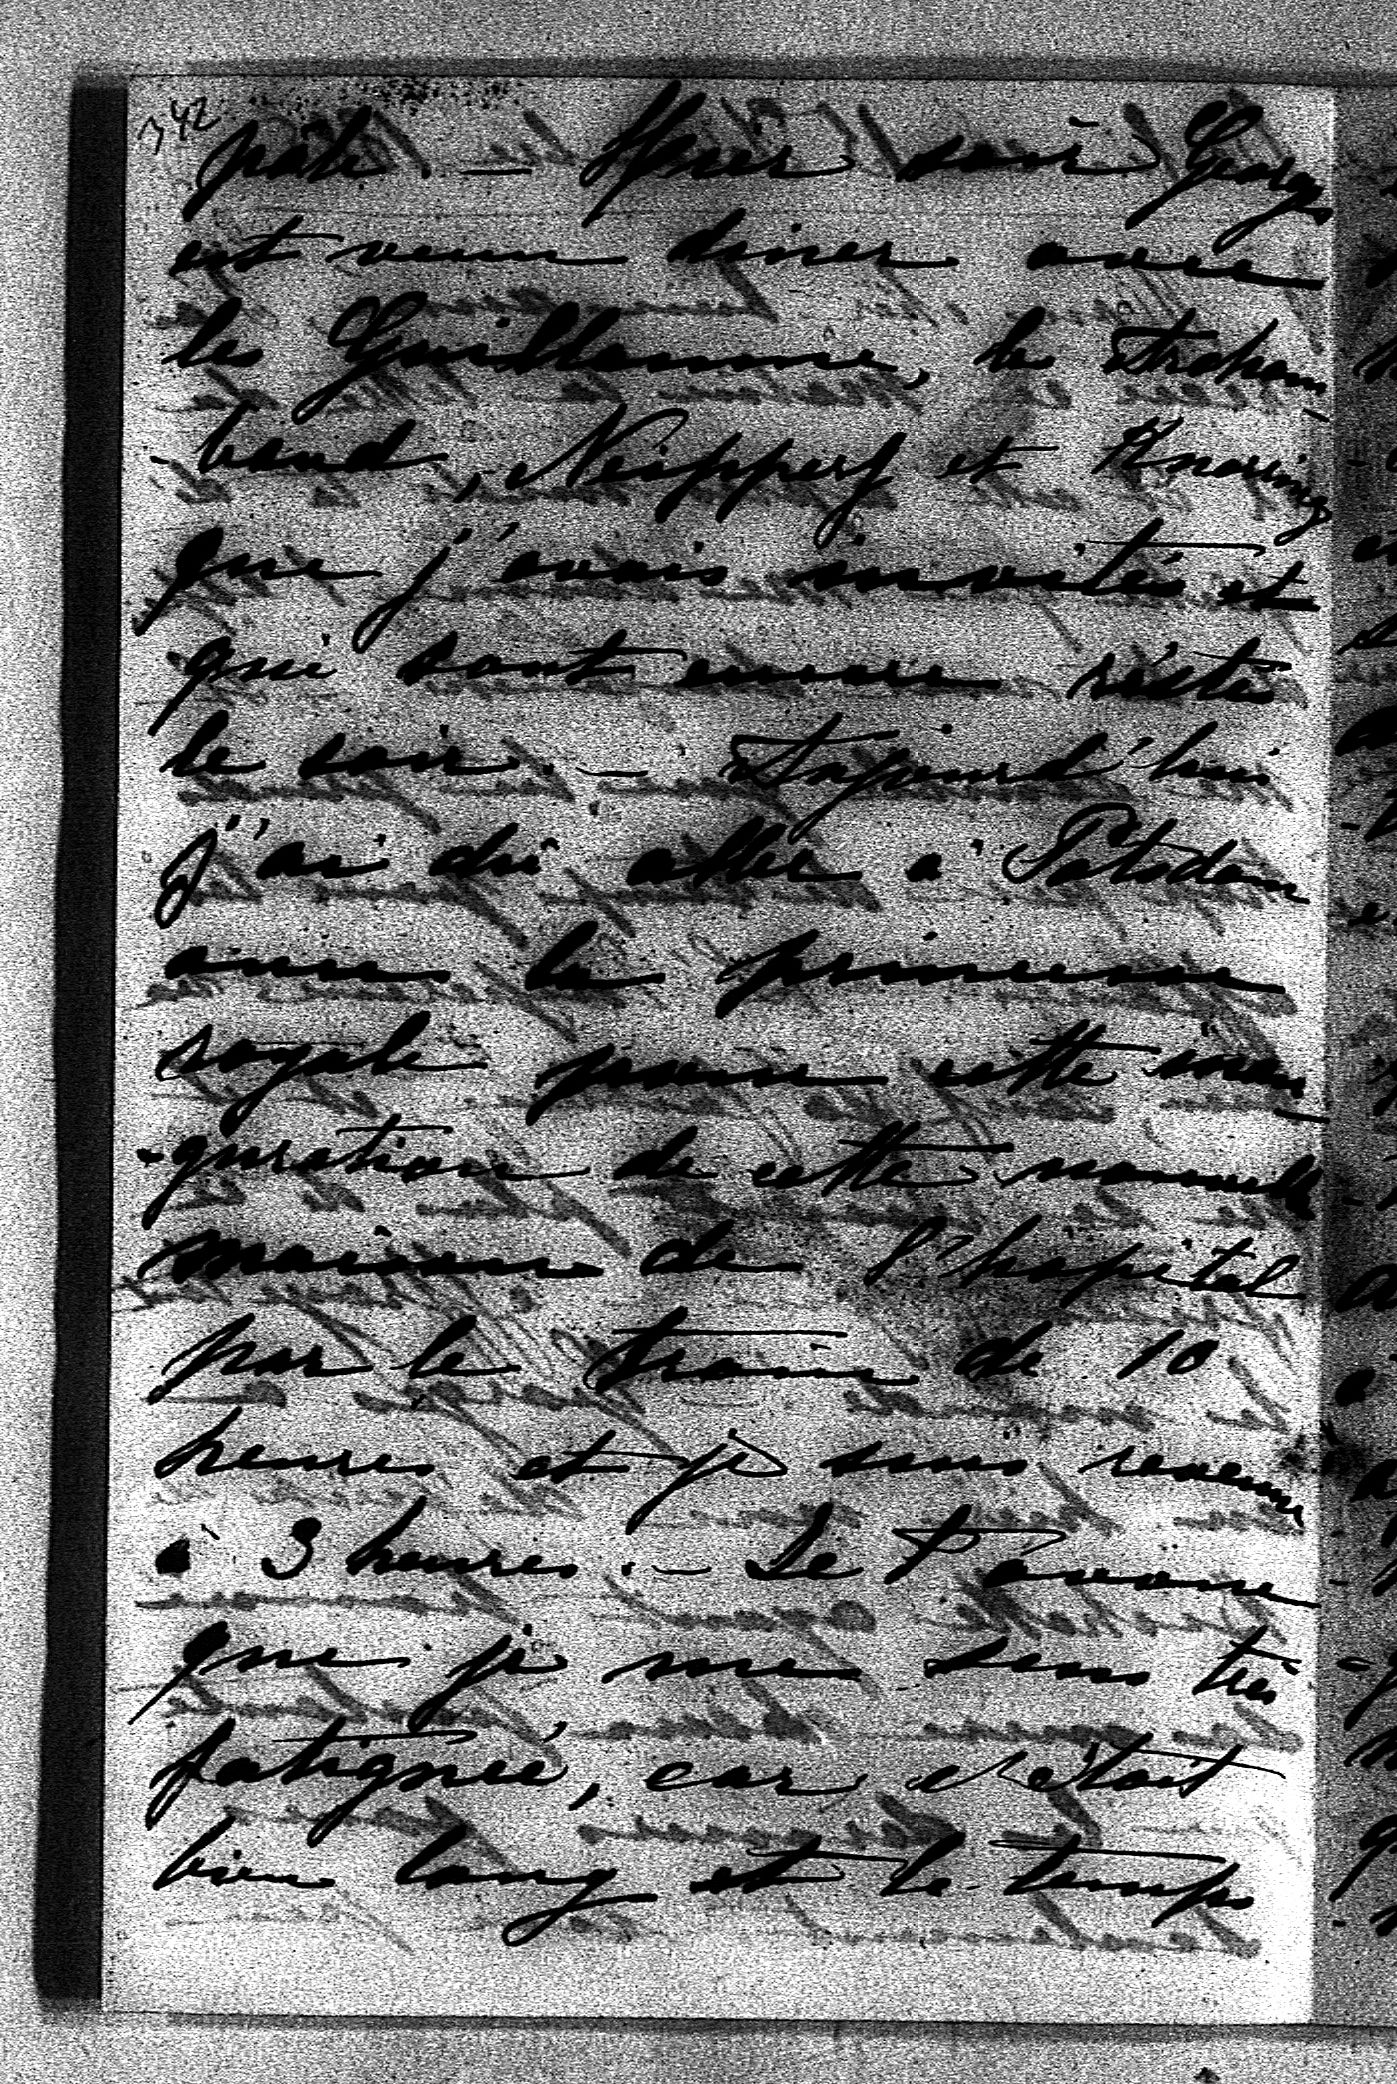 342
pâle. — Hier soir Georges
est venu diner avec
les Guillaume, les
-band, Neipperg et
que j'avais invités et
qui sont encore réstés
le soir. — Aujourd'hui
j'ai dû aller à Potsdam
avec la princesse
royale pour cette inau
-guration de cette nouvelle
maison de l'hopital
par le train de 10
heures et je suis revenue
à 3 heures. — Je t'avoue
que je me sens très
fatiguée, car c'était
bien long et le temps